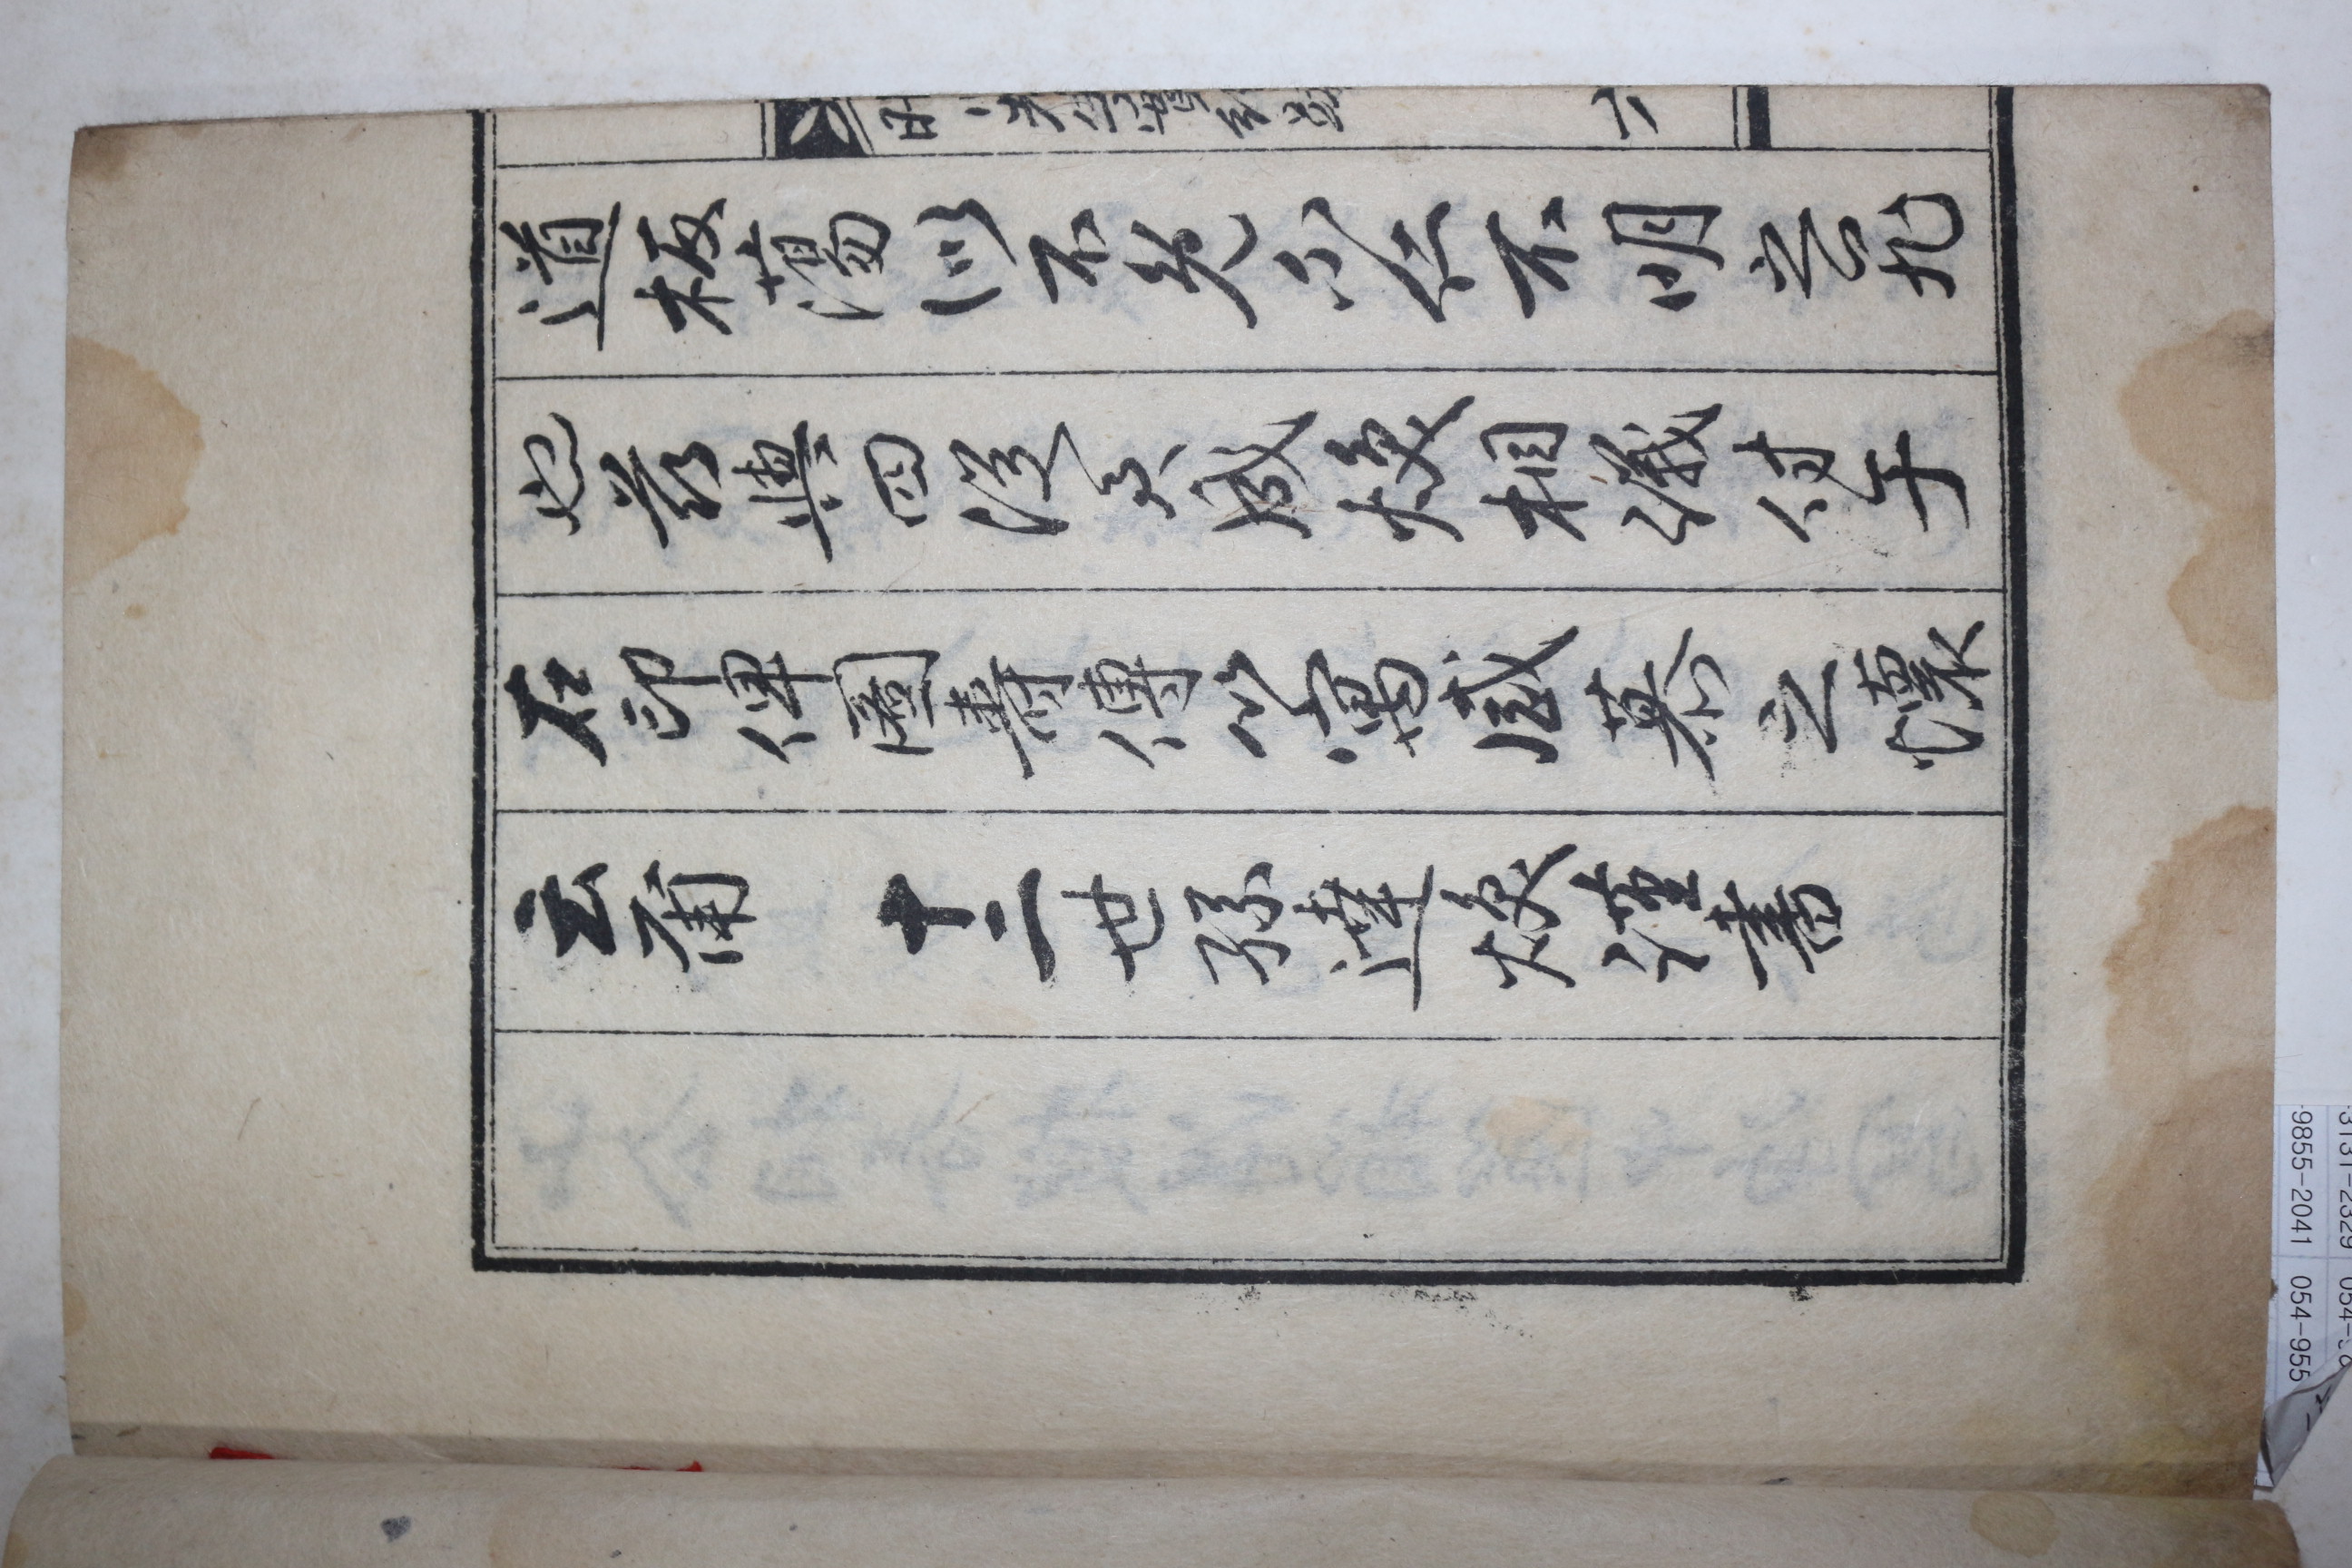 道板蕩似不免不仁不明之
也茲與四從咸煥相議付于
石印俾圖壽傳以寓感慕之懷
云爾　十二世孫達煥謹書
先生實紀跋
六
9855-2041 054-955
3131-2329